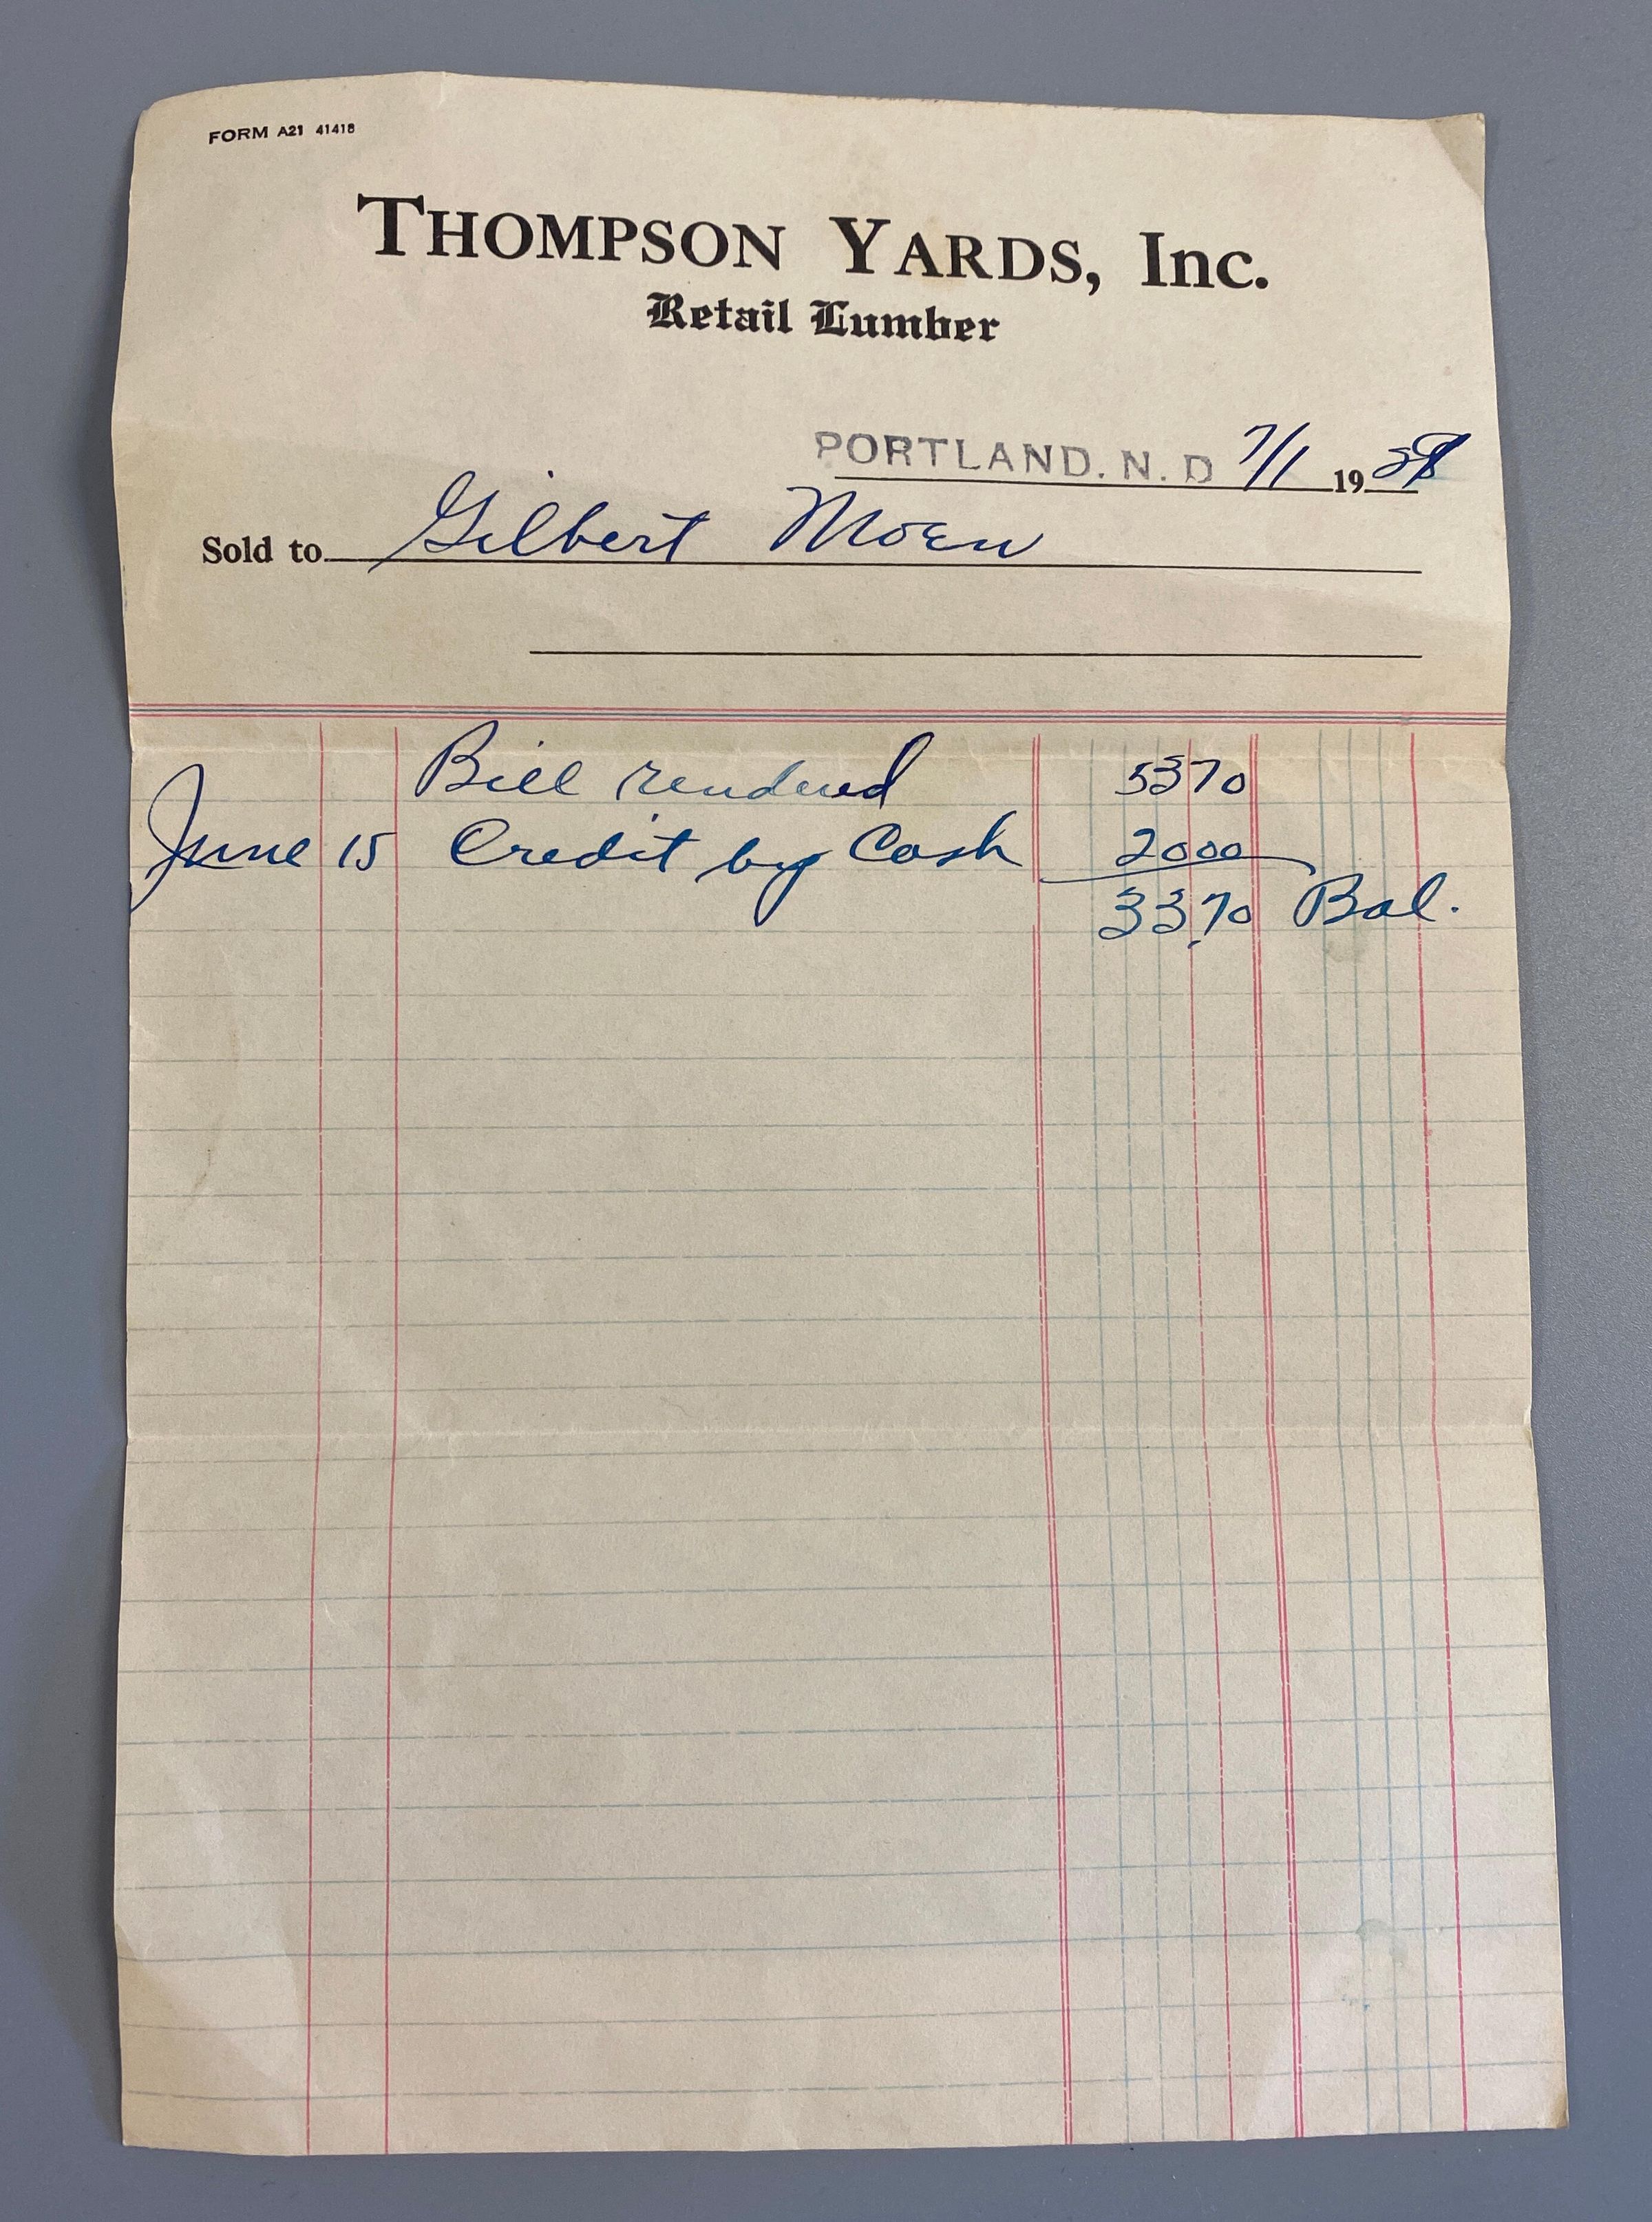 FORM A21 41418
THOMPSON YARDS, Inc.
Retail Lumber
PORTLAND. N. D 7/1 19
Sold to Gilbert Moen
Bill rendered 5370
June 15 Credit by Cash 2000
3370 Bal.